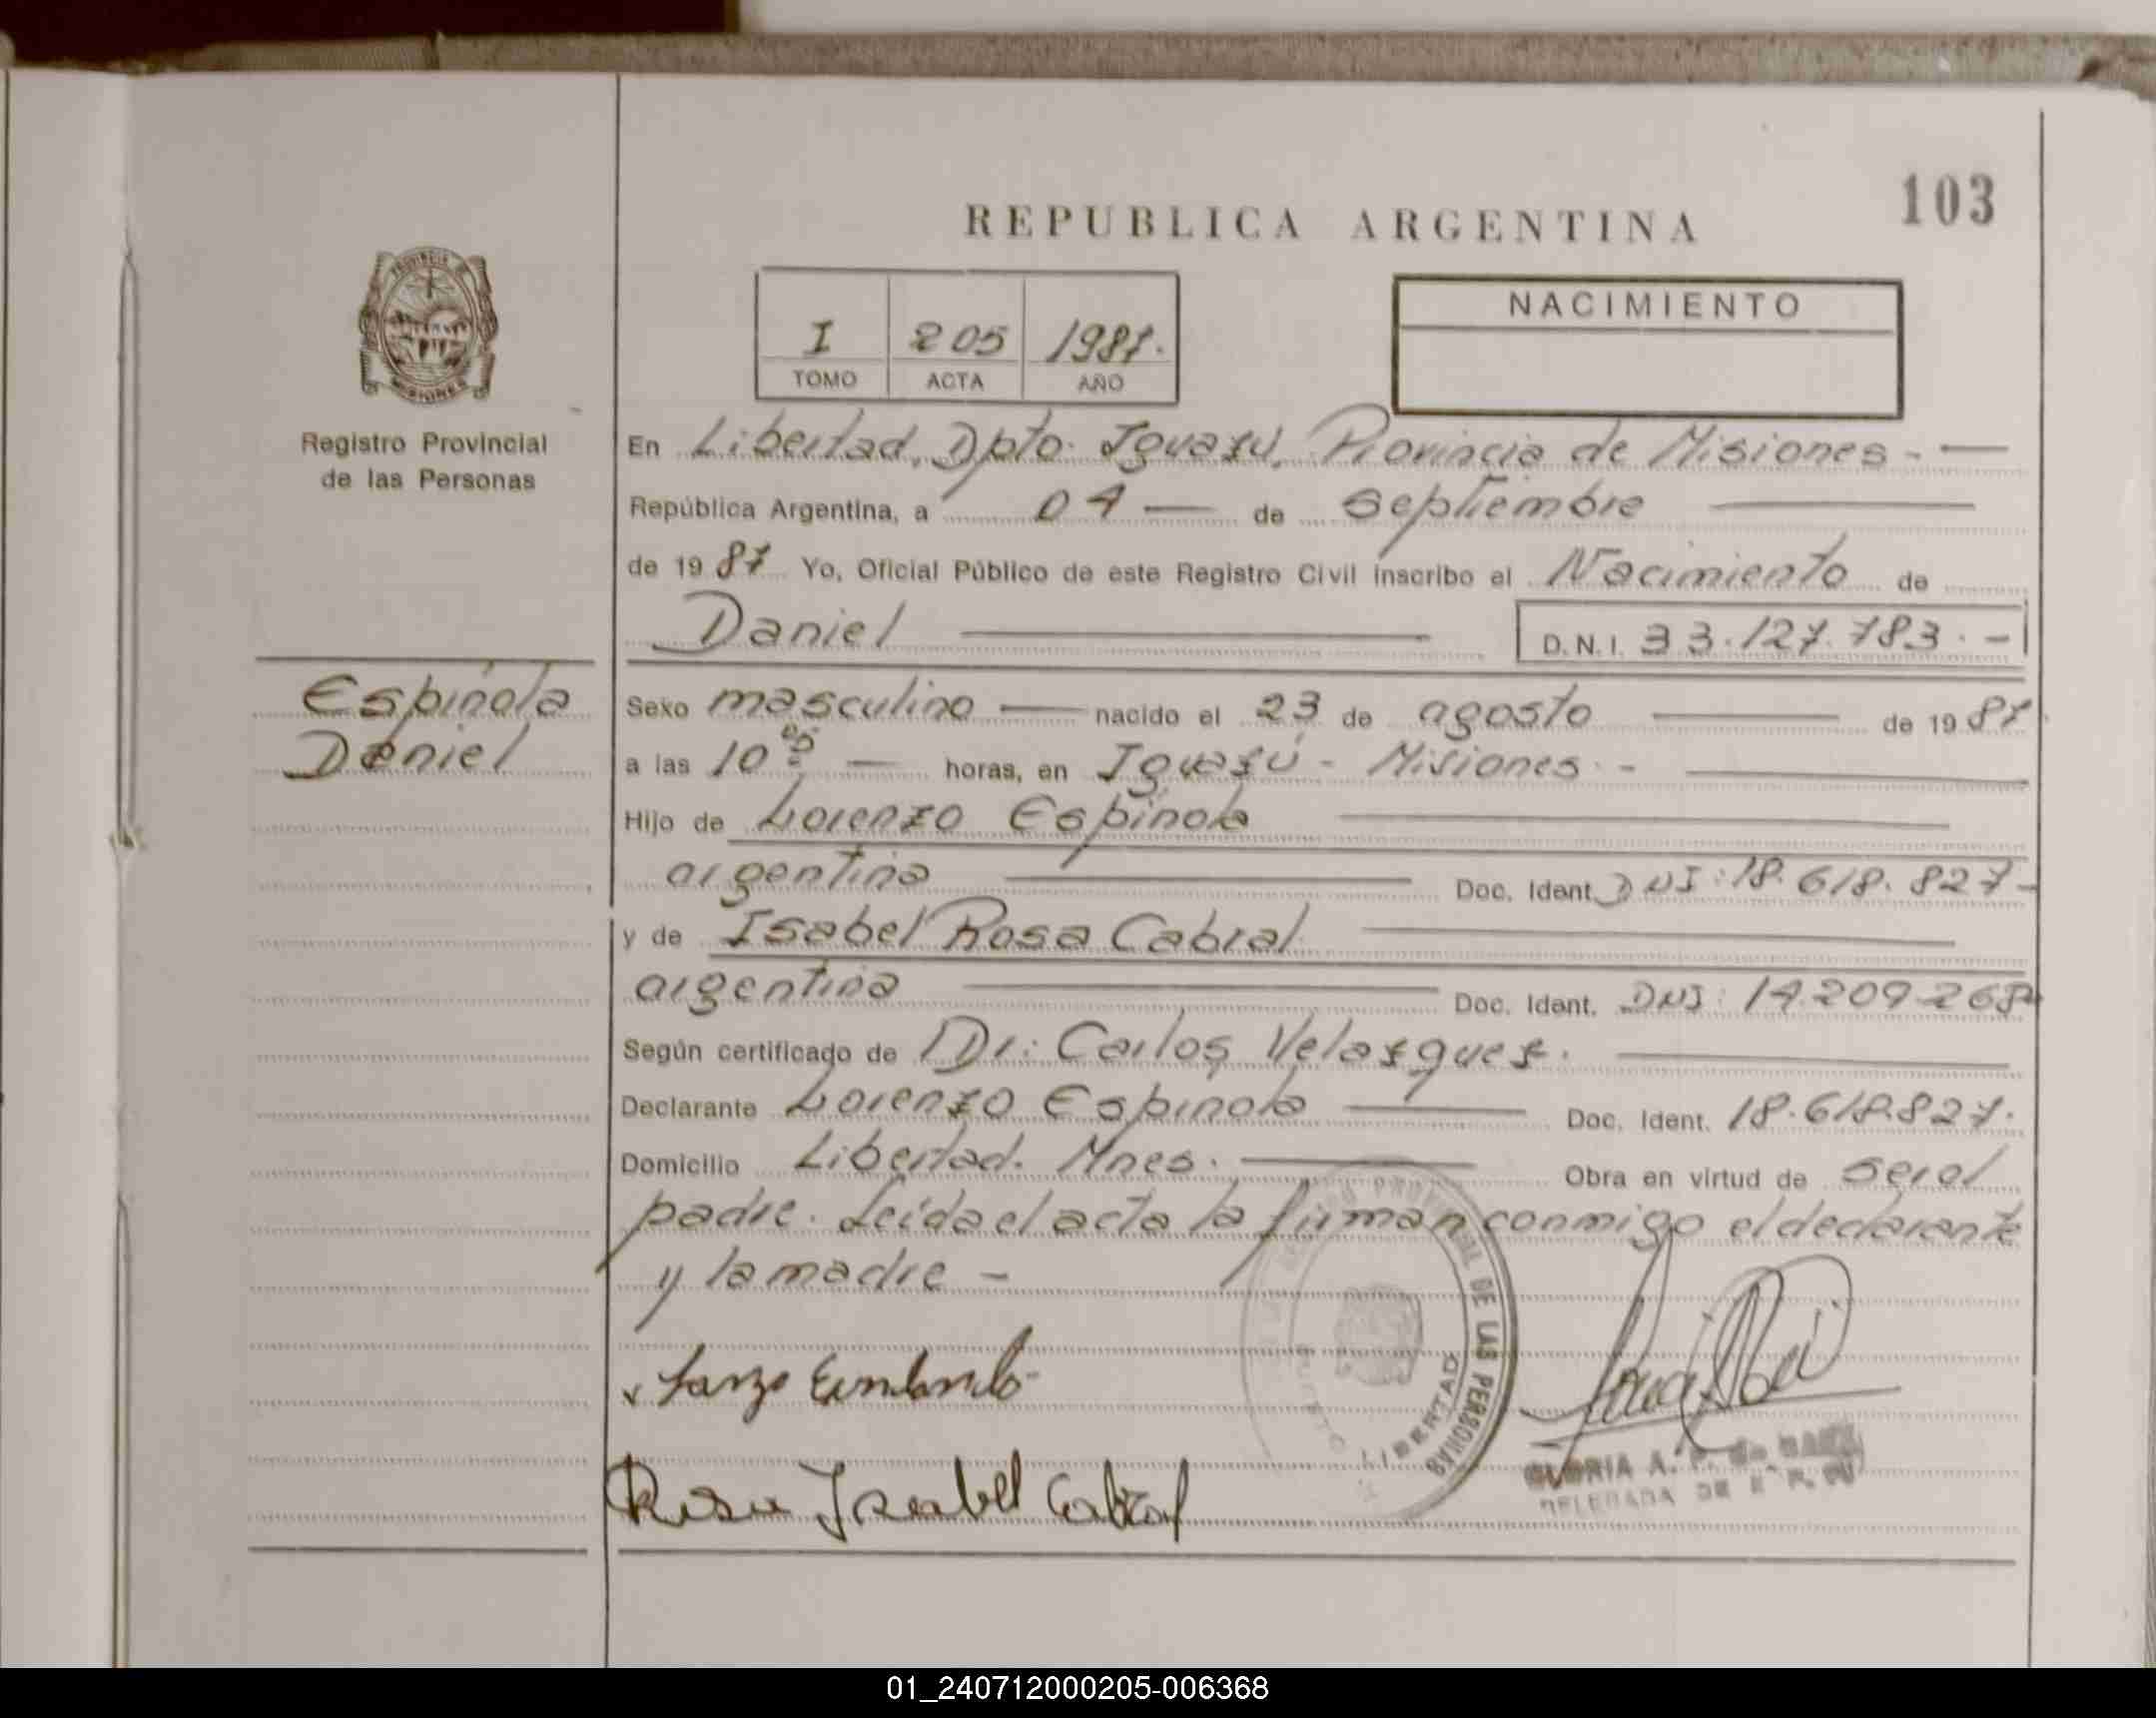 103
REPUBLICA ARGENTINA
NACIMIENTO
I 205 1987.
TOMO ACTA AÑO
Registro Provincial
de las Personas
En Libertad, Dpto. Iguazú, Provincia de Misiones. —
República Argentina, a 04 — de septiembre —
de 1987 Yo, Oficial Público de este Registro Civil inscribo el Nacimiento de
Daniel — D.N.I. 33.127.783. -
Espínola
Daniel
Sexo masculino — nacido el 23 de agosto — de 1987.
a las 10 05 — horas, en Iguazú - Misiones. - —
Hijo de Lorenzo Espínola —
argentina — Doc. Ident. DNI: 18.618.827 -
y de Isabel Rosa Cabral —
argentina — Doc. Ident. DNI: 14.209.268
Según certificado de Dr: Carlos Velazquez. —
Declarante Lorenzo Espinola — Doc. Ident. 18.618.827.
Domicilio Libertad. Mnes. — Obra en virtud de ser el
padre. Leída el acta la firman conmigo el declarante
y la madre -
PROVINCIAL DE LAS PERSONAS
LIBERTAD
Rosa Isabel Cabral
GLORIA A. P. de
DELEGADA DE R. P.
01_240712000205-006368